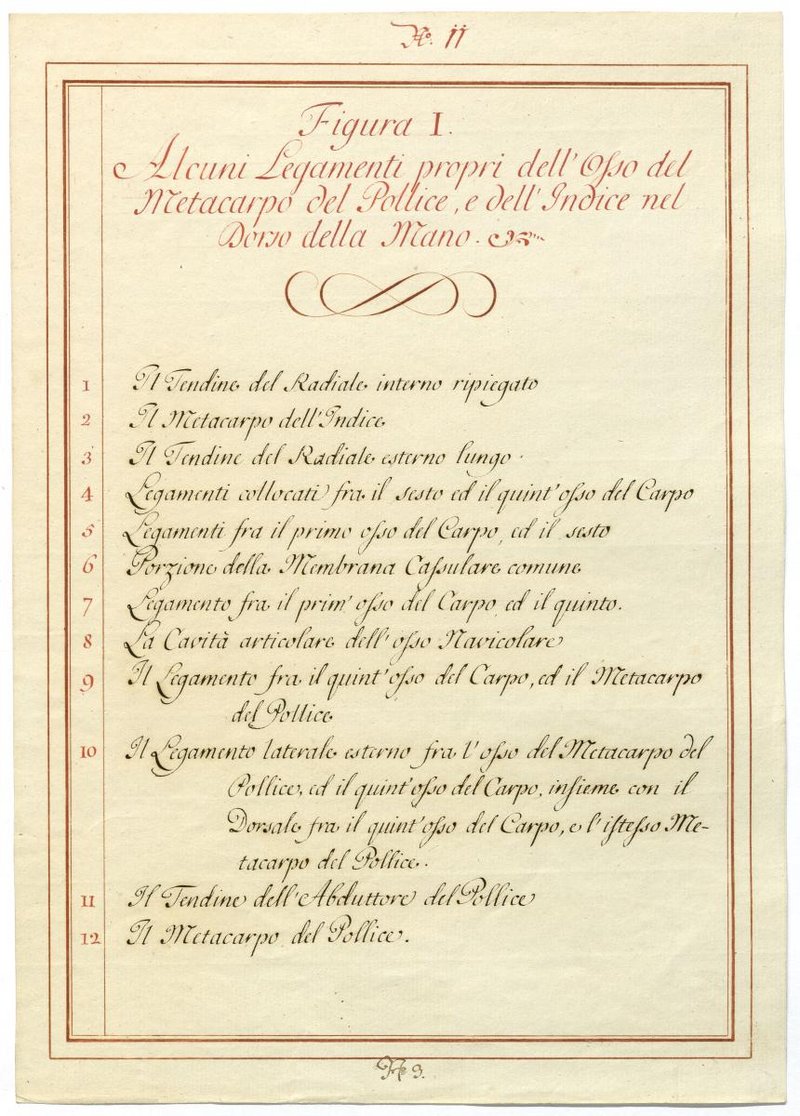 No. 11
Figura I.
Alcuni Legamenti propri dell'Osso del
Metacarpo del Pollice, e dell'Indice nel
Dorso della Mano.
1 Il Tendine del Radiale interno ripiegato
2 Il Metacarpo dell'Indice
3 Il Tendine del Radiale esterno lungo.
4 Legamenti collocati fra il sesto ed il quint'osso del Carpo
5 Legamenti fra il primo osso del Carpo, ed il sesto
6 Porzione della Membrana Cassulare comune
7 Legamento fra il prim' osso del Carpo, ed il quinto.
8 La Cavità articolare dell'osso Navicolare
9 Il Legamento fra il quint'osso del Carpo, ed il Metacarpo
del Pollice
10 Il Legamento laterale esterno fra l'osso del Metacarpo del
Pollice, ed il quint'osso del Carpo, insieme con il
Dorsale fra il quint'osso del Carpo, e l'istesso Me-
tacarpo del Pollice.
11 Il Tendine dell'Abduttore del Pollice
12 Il Metacarpo del Pollice.
3.